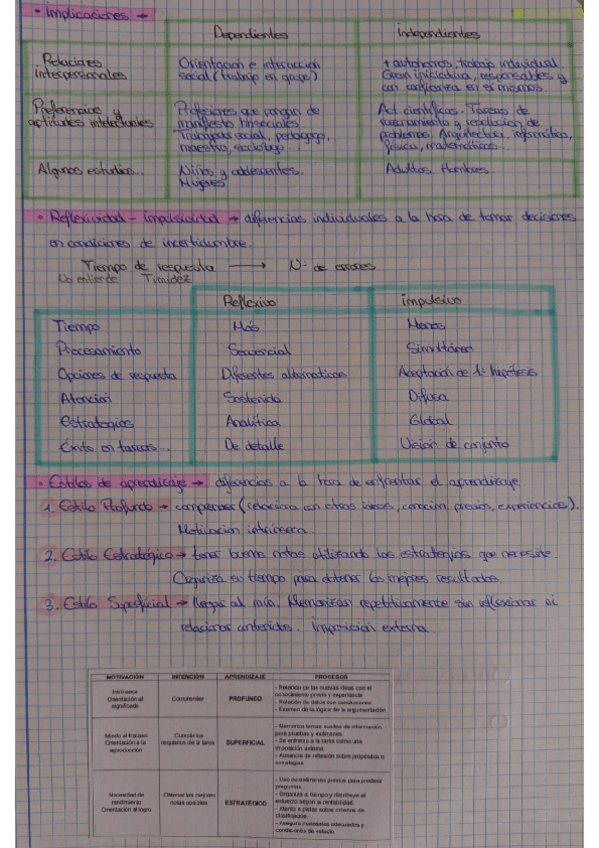 • Implicaciones →
Dependientes
Independientes
Relaciones interpersonales
Orientación e interacción social (trabajo en grupo)
+ autónomos, trabajo individual. Gran iniciativa, responsables y con confianza en sí mismos.
Preferencias y aptitudes intelectuales
Profesiones que pongan de manifiesto lo social. Trabajador social, pedagogo, maestro, sociólogo...
Act. científicas. Tareas de razonamiento y resolución de problemas. Arquitectura, informática, física, matemáticas...
Algunos estudios...
Niños y adolescentes. Mujeres
Adultos. Hombres.
• Reflexividad - impulsividad → diferencias individuales a la hora de tomar decisiones
en condiciones de incertidumbre.
Tiempo de respuesta → Nº de errores
No entiende Timidez
Reflexivo
impulsivo
Tiempo
Más
Menos
Procesamiento
Secuencial
Simultáneo
Opciones de respuesta
Diferentes alternativas
Aceptación de 1ª hipótesis
Atención
Sostenida
Difusa
Estrategias
Analítica
Global
Éxito en tareas...
De detalle
Visión de conjunto
• Estilos de aprendizaje → diferencias a la hora de enfrentar el aprendizaje
1. Estilo Profundo → comprender (relaciona con otras ideas, conocim. previos, experiencias).
Motivación intrínseca.
2. Estilo Estratégico → tener buenas notas utilizando las estrategias que necesite.
Organiza su tiempo para obtener los mejores resultados.
3. Estilo Superficial → llegar al mín. Memorizar repetitivamente sin reflexionar ni
relacionar contenidos. Imposición externa.
MOTIVACIÓN
INTENCIÓN
APRENDIZAJE
PROCESOS
Intrínseca
Orientación al significado
Comprender
PROFUNDO
- Relación de las nuevas ideas con el conocimiento previo y experiencia
- Relación de datos con conclusiones
- Examen de la lógica de la argumentación
Miedo al fracaso
Orientación a la reproducción
Cumplir los requisitos de la tarea
SUPERFICIAL
- Memoriza temas sueltos de información para pruebas y exámenes.
- Se enfrenta a la tarea como una imposición externa
- Ausencia de reflexión sobre propósitos o estrategias
Necesidad de rendimiento
Orientación al logro
Obtener las mejores notas posibles
ESTRATÉGICO
- Uso de exámenes previos para predecir preguntas.
- Organiza el tiempo y distribuye el esfuerzo según la rentabilidad.
- Atento a pistas sobre criterios de clasificación.
- Asegura materiales adecuados y condiciones de estudio